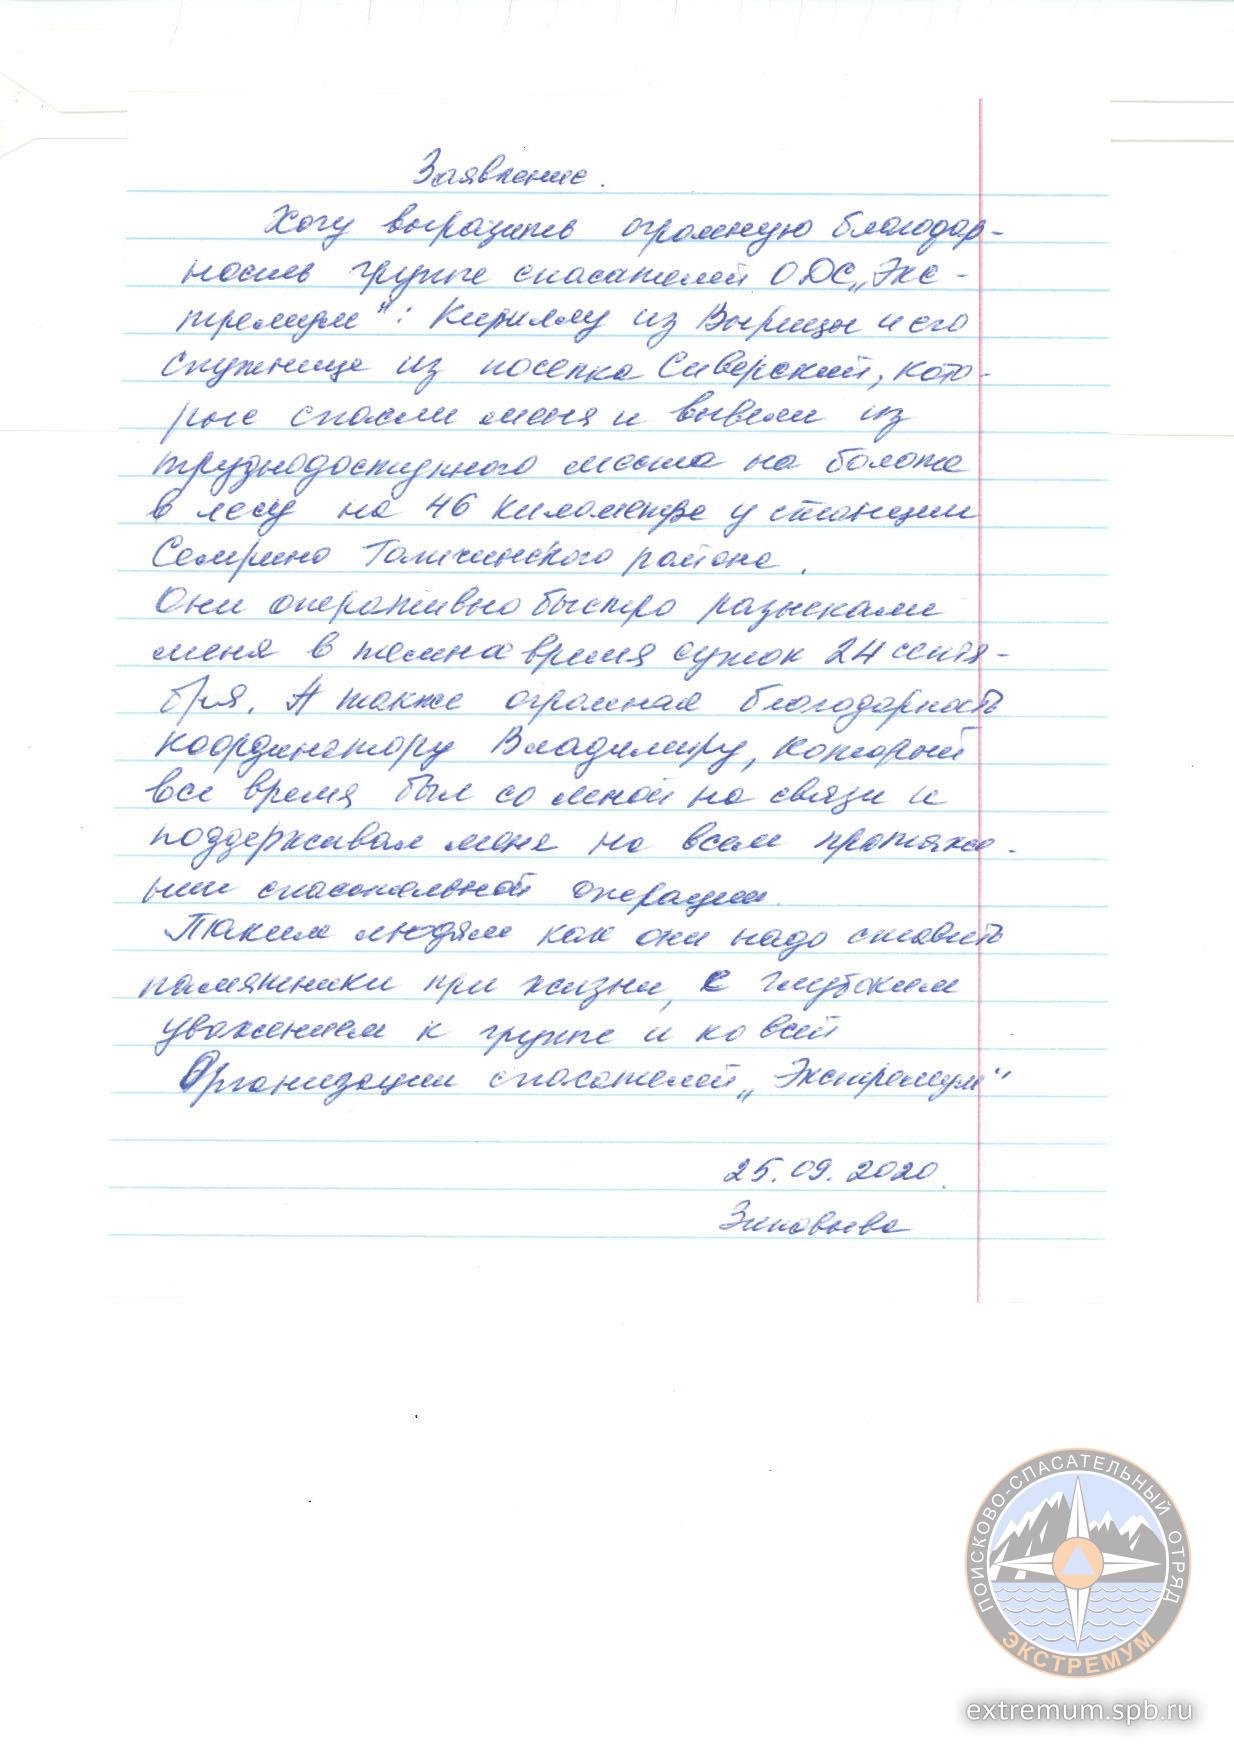 Заявление.
Хочу выразить огромную благодар-
ность группе спасателей ОДС „Экс-
тремум": Кириллу из Вырицы и его
спутнице из поселка Сиверский, кото-
рые спасли меня и вывели из
труднодоступного места на болоте
в лесу на 46 километре у станции
Семрино Гатчинского района.
Они оперативно быстро разыскали
меня в темное время суток 24 сентя-
бря. А также огромная благодарность
координатору Владимиру, который
все время был со мной на связи и
поддерживал меня на всем протяже-
нии спасательной операции.
Таким людям как они надо ставить
памятники при жизни, с глубоким
уважением к группе и ко всей
Организации спасателей „Экстремум"
25.09.2020.
Зиновьева
ПОИСКОВО-СПАСАТЕЛЬНЫЙ ОТРЯД
ЭКСТРЕМУМ
extremum.spb.ru